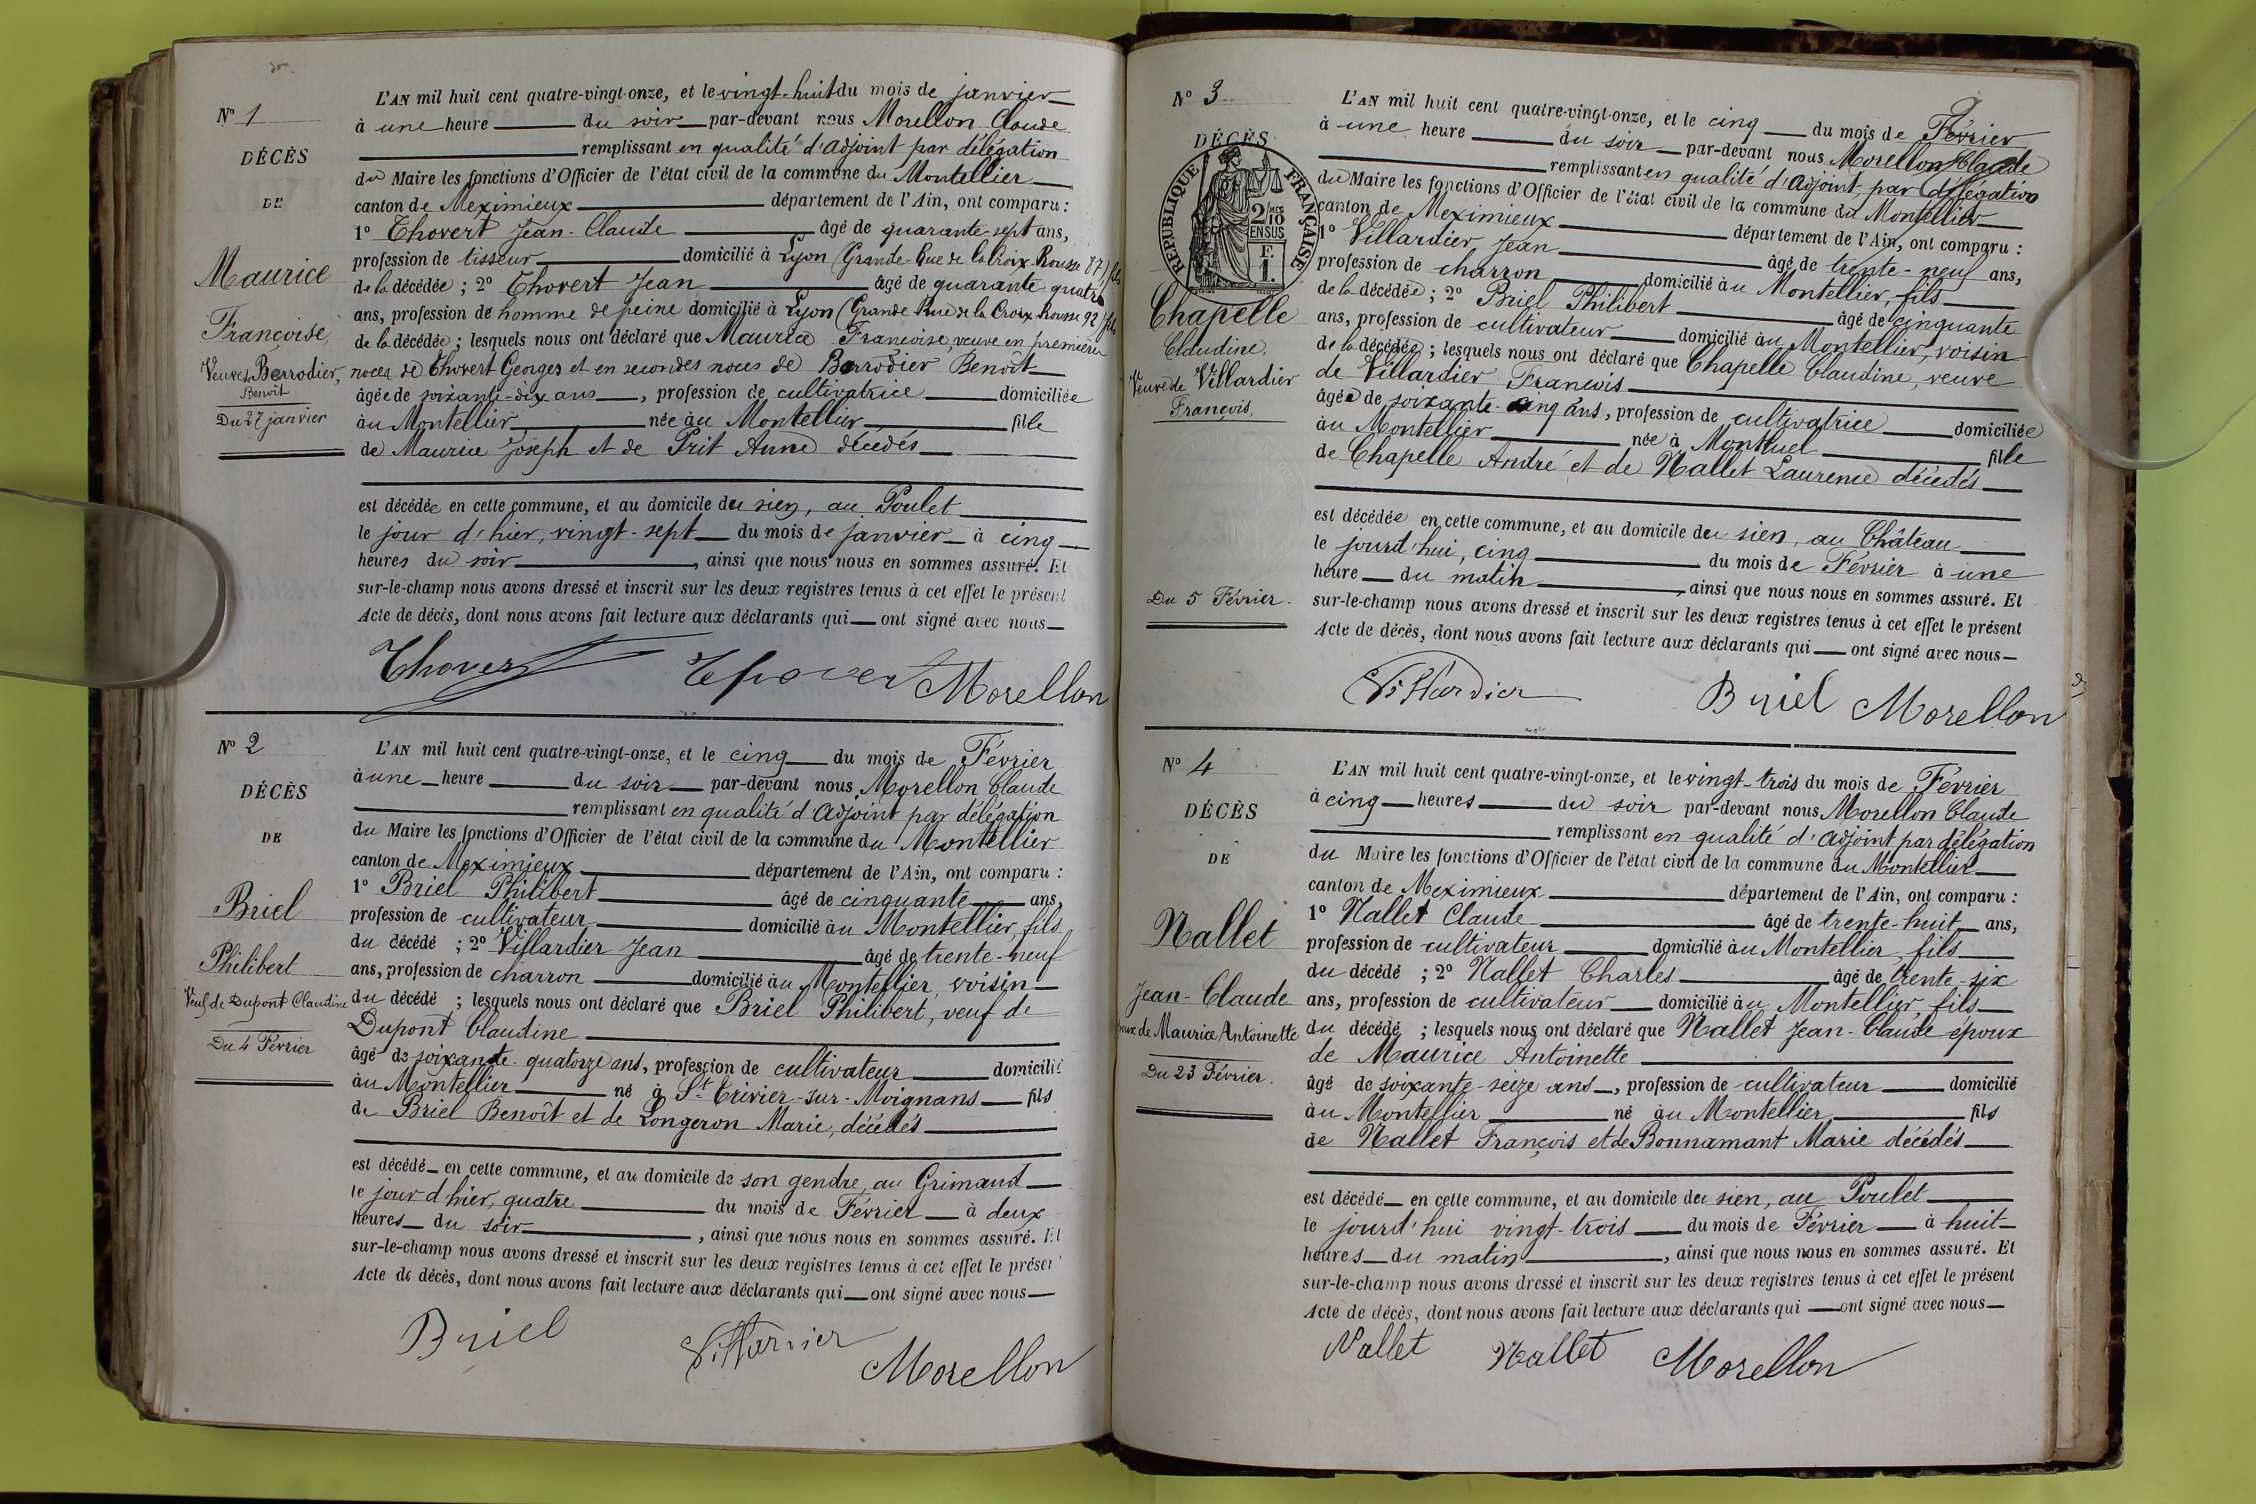 N° 1
DÉCÈS
DE
Maurice
Françoise,
Veuve de Berrodier,
Benoît
Du 27 janvier
L'AN mil huit cent quatre-vingt-onze, et le vingt-huit du mois de janvier
à une heure du soir par-devant nous Morellon Claude
remplissant en qualité d'adjoint par délégation
du Maire les fonctions d'Officier de l'état civil de la commune du Montellier
canton de Meximieux département de l'Ain, ont comparu :
1° Thovert Jean-Claude âgé de quarante-sept ans,
profession de tisseur domicilié à Lyon (Grande-Rue de la Croix-Rousse 87) fils
de la décédée ; 2° Thovert Jean âgé de quarante quatre
ans, profession de homme de peine domicilié à Lyon (Grande Rue de la Croix-Rousse 92) fils
de la décédée ; lesquels nous ont déclaré que Maurice Françoise, veuve en premières
noces de Thovert Georges et en secondes noces de Berrodier Benoît
âgée de soixante-dix ans, profession de cultivatrice domiciliée
au Montellier née au Montellier fille
de Maurice Joseph et de Prit Anne décédés
est décédée en cette commune, et au domicile du sien, au Poulet
le jour d'hier, vingt-sept du mois de janvier à cinq
heures du soir, ainsi que nous nous en sommes assuré. Et
sur-le-champ nous avons dressé et inscrit sur les deux registres tenus à cet effet le présent
Acte de décès, dont nous avons fait lecture aux déclarants qui ont signé avec nous
Thovert Thover Morellon
N° 2
DÉCÈS
DE
Briel
Philibert
Veuf de Dupont Claudine
Du 4 Février
L'AN mil huit cent quatre-vingt-onze, et le cinq du mois de Février
à une heure du soir par-devant nous Morellon Claude
remplissant en qualité d'adjoint par délégation
du Maire les fonctions d'Officier de l'état civil de la commune du Montellier
canton de Meximieux département de l'Ain, ont comparu :
1° Briel Philibert âgé de cinquante ans,
profession de cultivateur domicilié au Montellier, fils
du décédé ; 2° Villardier Jean âgé de trente-neuf
ans, profession de charron domicilié au Montellier, voisin
du décédé ; lesquels nous ont déclaré que Briel Philibert, veuf de
Dupont Claudine
âgé de soixante-quatorze ans, profession de cultivateur domicilié
au Montellier né à St Trivier-sur-Moignans fils
de Briel Benoît et de Longeron Marie, décédés
est décédé en cette commune, et au domicile de son gendre, au Grimaud
le jour d'hier, quatre du mois de Février à deux
heures du soir, ainsi que nous nous en sommes assuré. Et
sur-le-champ nous avons dressé et inscrit sur les deux registres tenus à cet effet le présent
Acte de décès, dont nous avons fait lecture aux déclarants qui ont signé avec nous
Briel Villardier Morellon
N° 3
DÉCÈS
REPUBLIQUE FRANÇAISE
2/10 MES
EN SUS
F.
1.
Chapelle
Claudine,
Veuve de Villardier
François,
Du 5 Février
L'AN mil huit cent quatre-vingt-onze, et le cinq du mois de Février
à une heure du soir par-devant nous Morellon Claude
remplissant en qualité d'adjoint, par délégation
du Maire les fonctions d'Officier de l'état civil de la commune du Montellier
canton de Meximieux département de l'Ain, ont comparu :
1° Villardier Jean âgé de trente-neuf ans,
profession de charron domicilié au Montellier, fils
de la décédée ; 2° Briel Philibert âgé de cinquante
ans, profession de cultivateur domicilié au Montellier, voisin
de la décédée ; lesquels nous ont déclaré que Chapelle Claudine, veuve
de Villardier François
âgée de soixante-cinq ans, profession de cultivatrice domiciliée
au Montellier née à Montluel fille
de Chapelle André et de Nallet Laurence décédés
est décédée en cette commune, et au domicile du sien, au Château
le jourd'hui, cinq du mois de Février à une
heure du matin, ainsi que nous nous en sommes assuré. Et
sur-le-champ nous avons dressé et inscrit sur les deux registres tenus à cet effet le présent
Acte de décès, dont nous avons fait lecture aux déclarants qui ont signé avec nous
Villardier Briel Morellon
N° 4
DÉCÈS
DE
Nallet
Jean-Claude
époux de Maurice Antoinette
Du 23 Février.
L'AN mil huit cent quatre-vingt-onze, et le vingt-trois du mois de Février
à cinq heures du soir par-devant nous Morellon Claude
remplissant en qualité d'adjoint par délégation
du Maire les fonctions d'Officier de l'état civil de la commune du Montellier
canton de Meximieux département de l'Ain, ont comparu :
1° Nallet Claude âgé de trente-huit ans,
profession de cultivateur domicilié au Montellier, fils
du décédé ; 2° Nallet Charles âgé de trente-six
ans, profession de cultivateur domicilié au Montellier, fils
du décédé ; lesquels nous ont déclaré que Nallet Jean-Claude époux
de Maurice Antoinette
âgé de soixante-seize ans, profession de cultivateur domicilié
au Montellier né au Montellier fils
de Nallet François et de Bonnamant Marie décédés
est décédé en cette commune, et au domicile du sien, au Poulet
le jourd'hui vingt-trois du mois de Février à huit
heures du matin, ainsi que nous nous en sommes assuré. Et
sur-le-champ nous avons dressé et inscrit sur les deux registres tenus à cet effet le présent
Acte de décès, dont nous avons fait lecture aux déclarants qui ont signé avec nous
Nallet Nallet Morellon